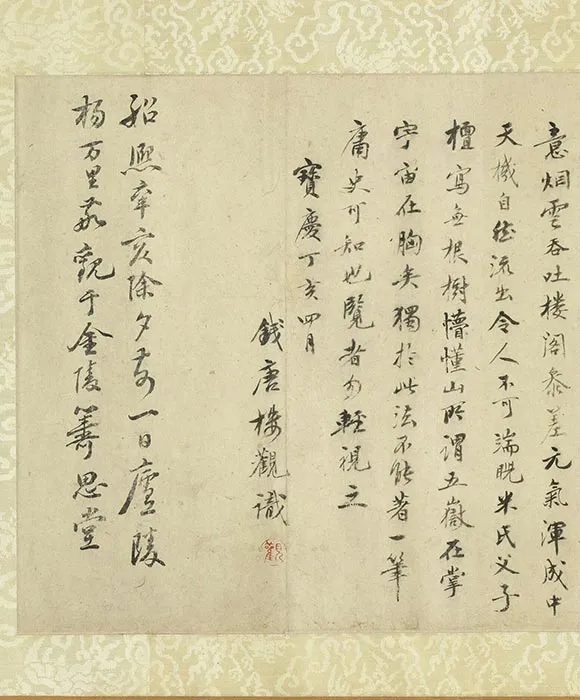 意烟雲吞吐楼閣叅差元氣渾成中
天機自然流出令人不可端睨米氏父子
檀寫無根樹懵懂山所謂五嶽在掌
宇宙在胸矣獨於此法不能著一筆
庸史可知也覽者勿輕視之
寶慶丁亥四月
錢唐樓觀識
紹熙辛亥除夕前一日廬陵
楊万里敬觀于金陵籌思堂